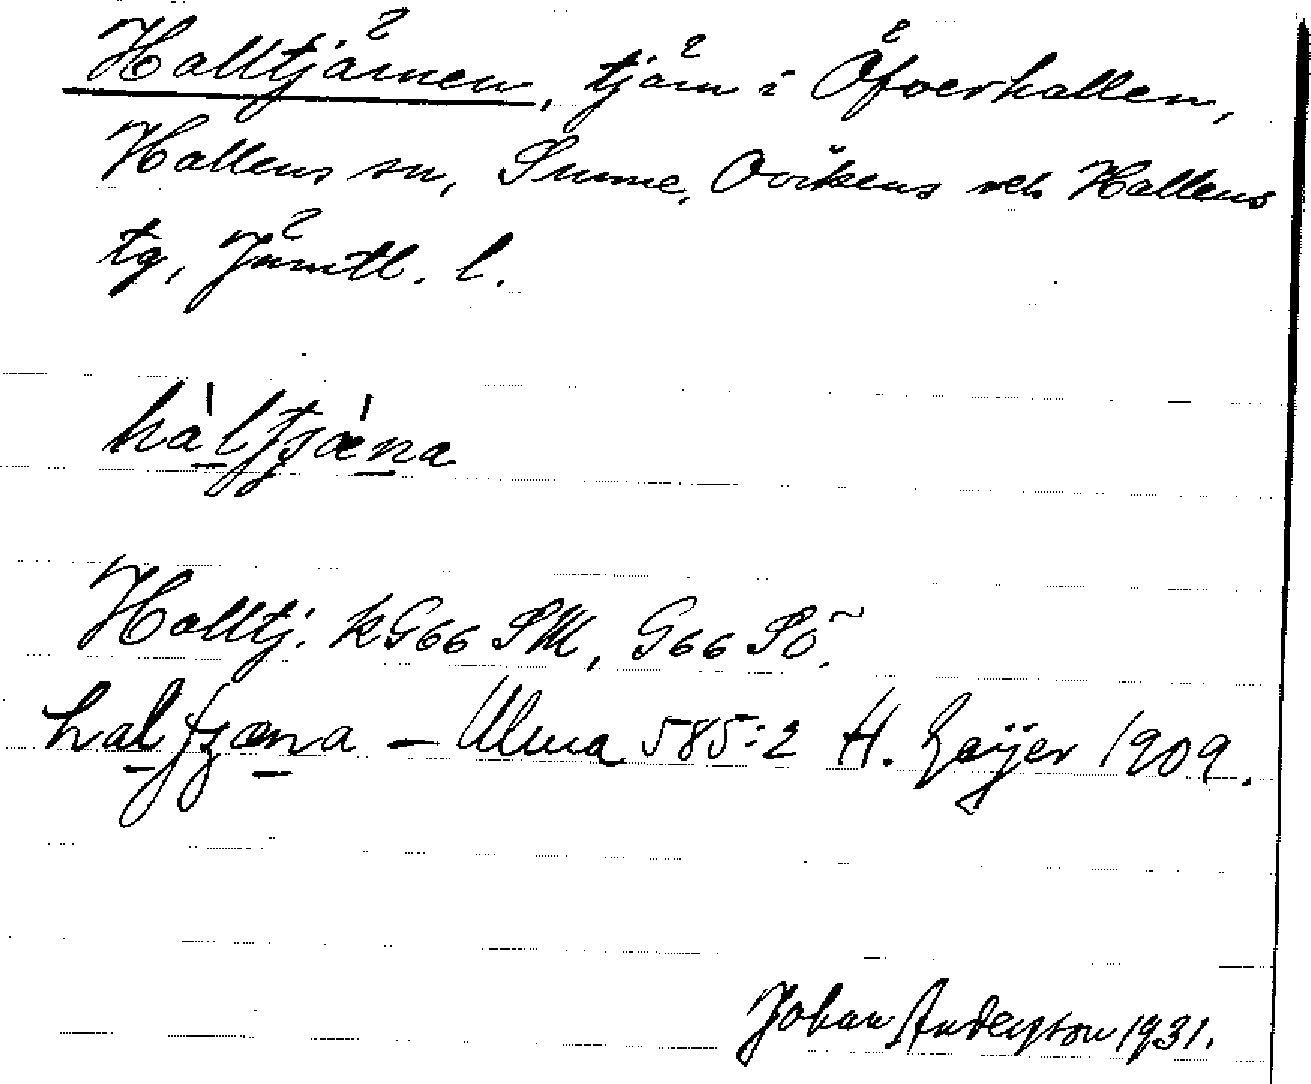 Halltjärnen, tjärn i Öfverhallen,
Hallens sn, Sunne, Ovikens och Hallens
tg, Jämtl. l.
Halltj. kG66 SM, G66 SÖ.
– Ulma 585:2 H. Geijer 1909.
Johan Anderson 1931.